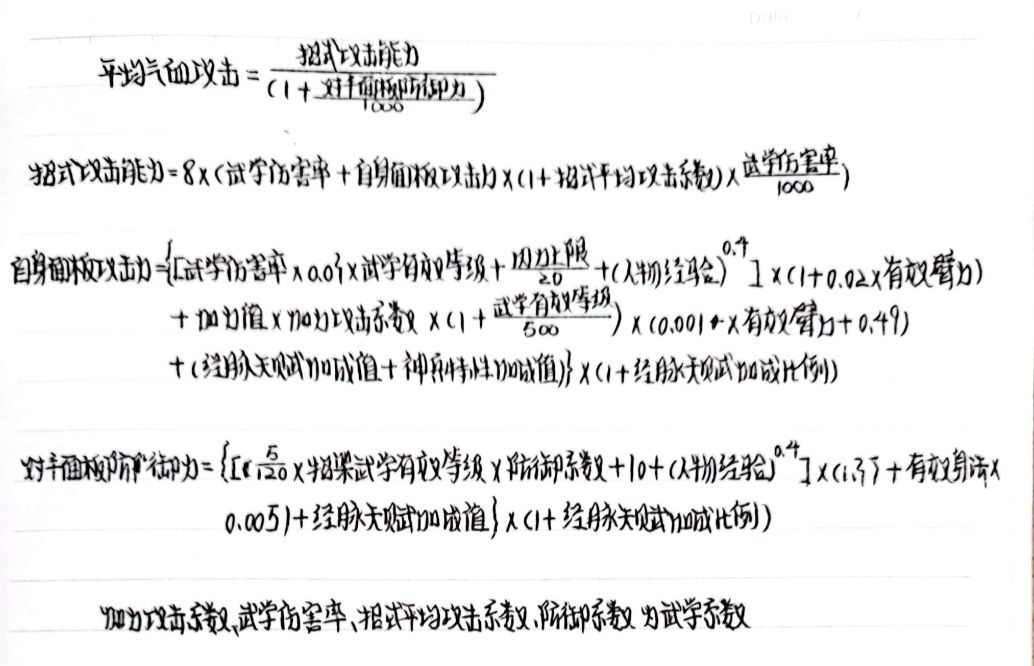 Date /
平均气血攻击 = 招式攻击能力 / (1 + 对手面板防御力/1000)
招式攻击能力 = 8×(武学伤害率 + 自身面板攻击力×(1+招式平均攻击系数)×武学伤害率/1000)
自身面板攻击力={[武学伤害率×0.03×武学有效等级 + 内力上限/20 + (人物经验)^0.4]×(1+0.02×有效臂力)
+ 加力值×加力攻击系数×(1+武学有效等级/500)×(0.001×有效臂力+0.49)
+(经脉天赋加成值+神兵特性加成值)}×(1+经脉天赋加成比例)
对手面板防御力={[5/120×招架武学有效等级×防御系数+10+(人物经验)^0.4]×(1.35+有效身法×
0.005)+经脉天赋加成值}×(1+经脉天赋加成比例)
加力攻击系数、武学伤害率、招式平均攻击系数、防御系数 为武学系数